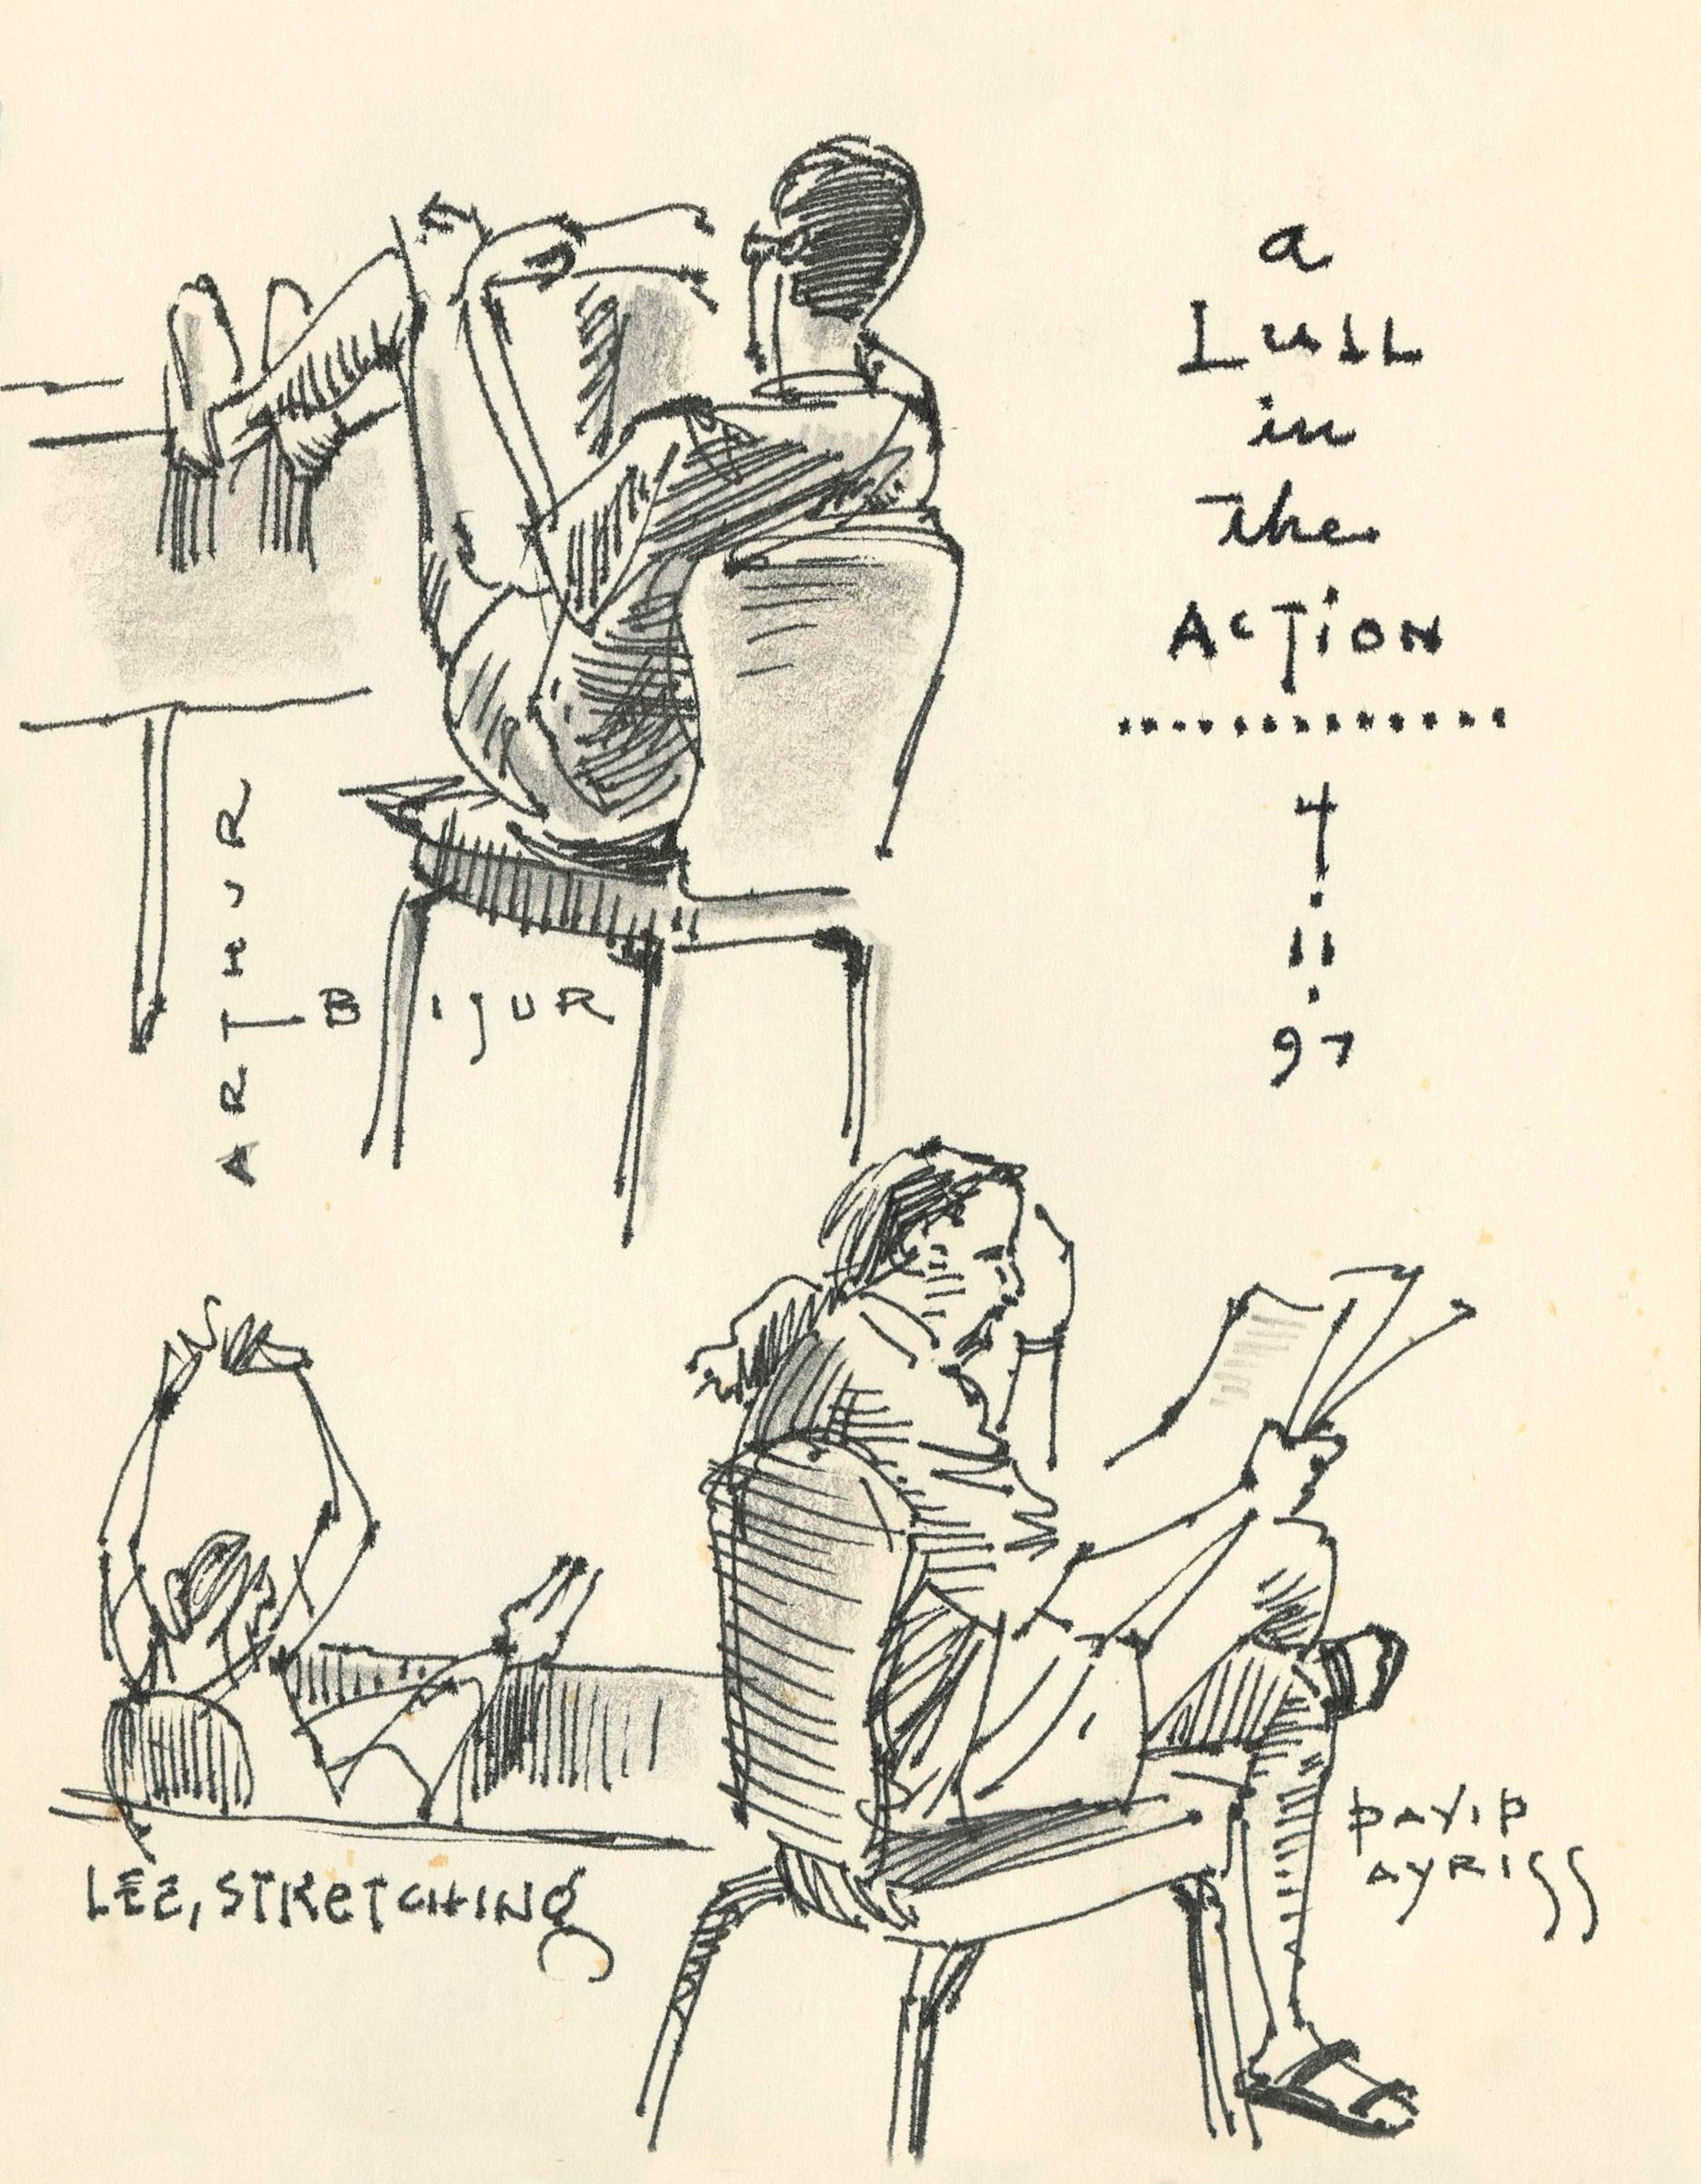 a
Lull
in
the
Action
4
.
11
.
97
ARTHUR
BIJUR
LEE, STRETCHING
DAVID
AYRISS